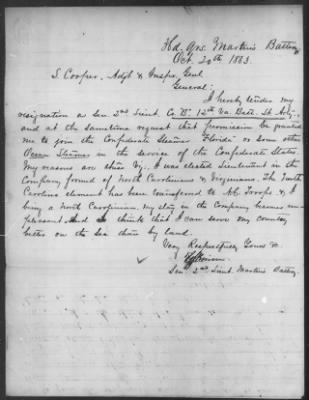 Hd. Qrs. Martin's Battery
Oct. 20th 1863.
S. Cooper. Adjt & Inspr. Genl
General:
I hereby tender my
resignation as Sen 2nd Lieut. Co. "D." 12th Va. Batt. Lt Arty.,
and at the sametime request that permission be granted
me to join the Confederate Steamer Florida or some other
Ocean Steamer in the service of the Confederate States.
My reasons are these Viz., I was elected Lieutentent in the
Company formed of North Carolinians & Virginians. The North
Carolina element has been transferred to N.C. Troops & I
being a North Carolinian. my stay in the Company becomes un-
pleasant. And I think that I can serve my country
better on the Sea than by land.
Very Respectfully Yours &c
Sen 2nd Lieut. Martin's Battery.